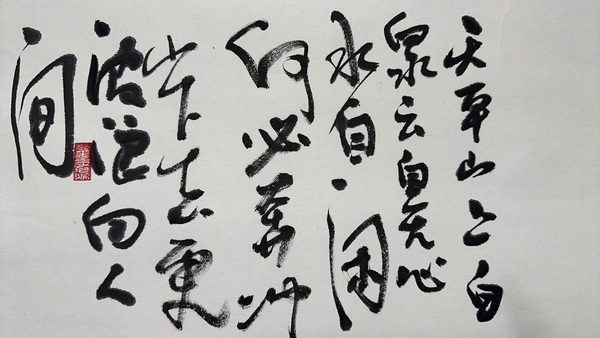 天平山上白
泉云自无心
水自闲
何必奔冲
山下去更
波浪向人
间